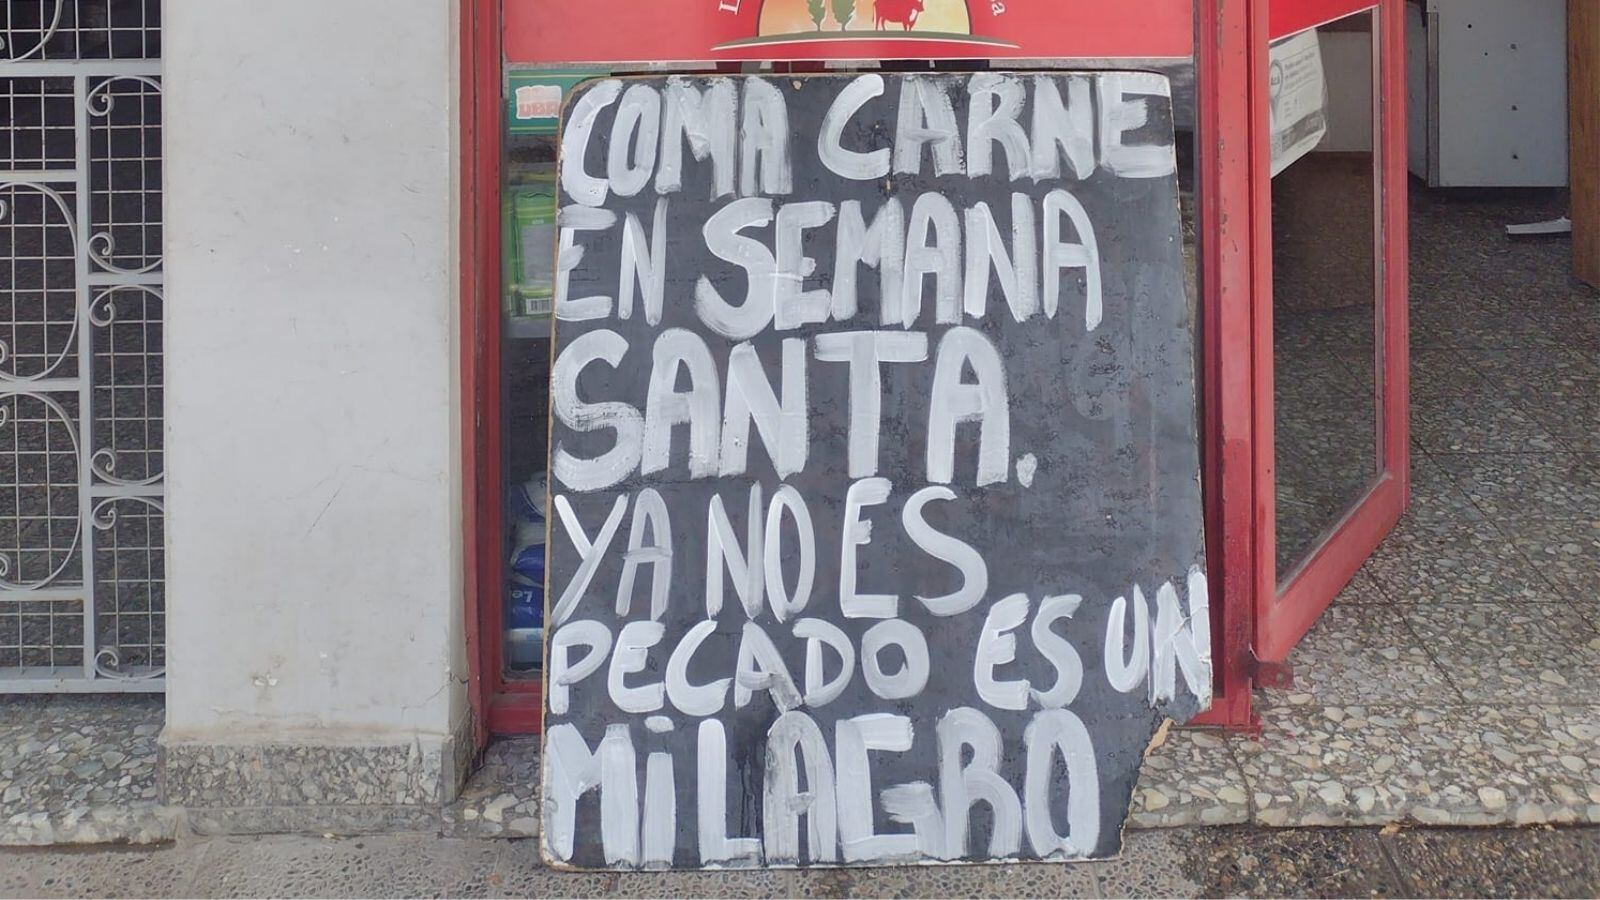 COMA CARNE
EN SEMANA
SANTA.
YA NO ES
PECADO ES UN
MiLAGRO